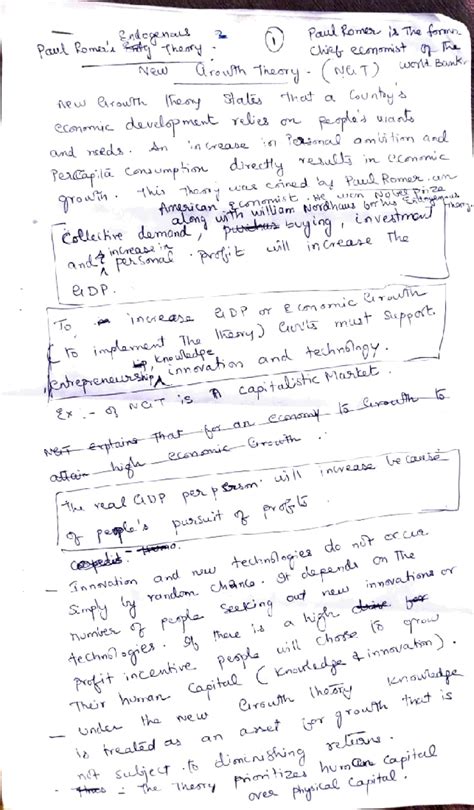 Endogenous
Paul Romer's Theory.
①
Paul Romer is The former
Chief economist of The
World Bank.
New Growth Theory. (NGT)
New Growth Theory States That a Country's
economic development relies on people's wants
and needs. An increase in Personal ambition and
Percapita Consumption directly results in economic
growth. This Theory was coined by Paul Romer, an
American economist. He won Nobel Prize
along with William Nordhaus for his Endogenous Theory.
Collective demand, buying, investment
and increase in personal profit will increase The
GDP.
To increase GDP or Economic Growth
(to implement The Theory) Govts must Support
entrepreneurship, knowledge, innovation and technology.
Ex :- of NGT is A capitalistic Market.
NGT explains That for an economy to Growth to
attain high economic Growth.
The real GDP per person will increase because
of people's pursuit of profits
- Innovation and new technologies do not occur
Simply by random chance. It depends on The
number of people Seeking out new innovations or
technologies. If there is a high
Profit incentive people will choose to grow
Their human Capital (knowledge & innovation).
- Under the new Growth Theory knowledge
is treated as an asset for growth that is
not subject to diminishing returns.
- The Theory prioritizes human Capital
over physical Capital.